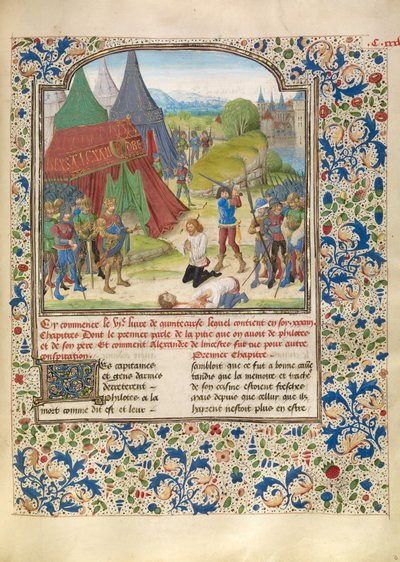 .C. xxxi
Cy commence le vi͞e liure de quintecurse lequel contient en soy .xxxiii.
Chapitres Dont le premier parle de la pitie que on auoit de philotes
et de son pere Et comment Alexandre de lincestes fut tue pour autre
conspiration.
Premier Chapitre.
Les capitaines
et gens darmes
decreterent
philotes a la
mort comme dit est et leur
sambloit que ce fut a bonne cause
tandis que la memoire et trache
de son estoient fresches
mais depuis que cellui que ilz
haioient nestoit plus en estre